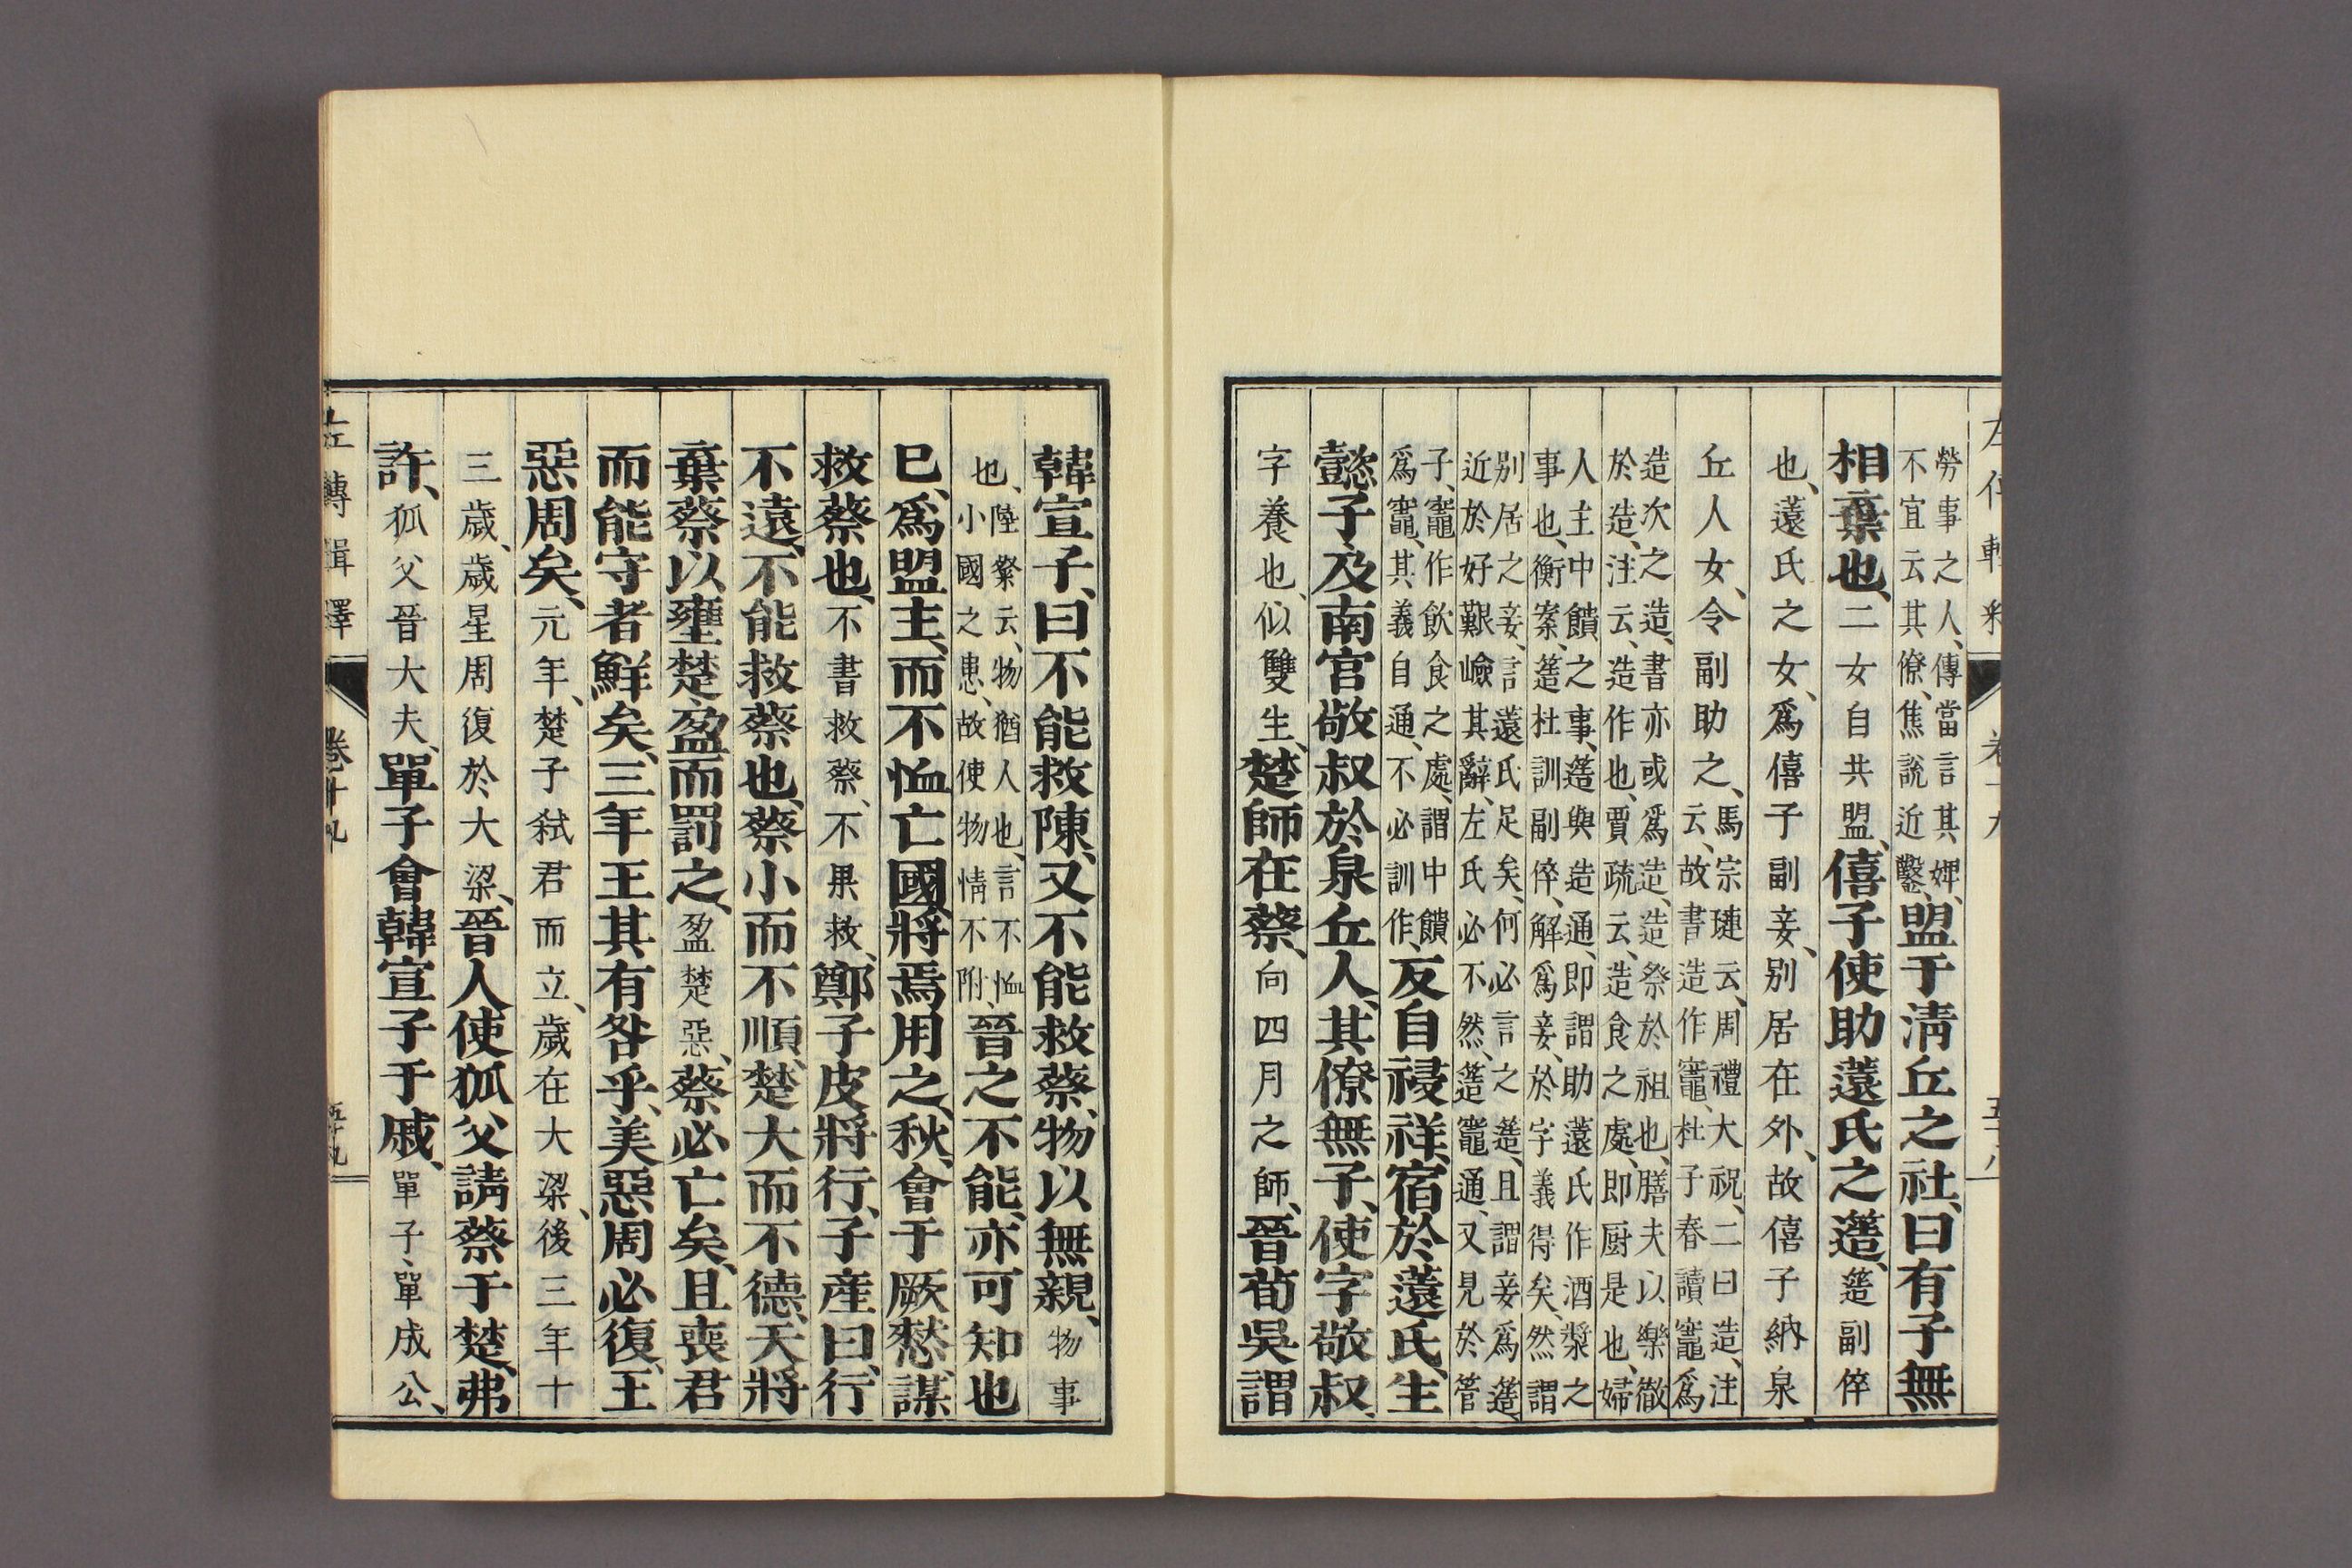 左傳輯釋 卷十九 五十八
勞事之人、傳當言其婢、
不宜云其僚、焦說近鑿、
盟于清丘之社、曰有子無
相棄也、二女自共盟、僖子使助薳氏之簉、簉副倅
也、薳氏之女、爲僖子副妾、别居在外、故僖子納泉
丘人女、令副助之、
馬宗璉云、周禮大祝、二曰造、注
云、故書造作竈、杜子春讀竈爲
造次之造、書亦或爲造、造祭於祖也、膳夫以樂徹
於造、注云、造作也、賈疏云、造食之處、即厨是也、婦
人主中饋之事、簉與造通、即謂助薳氏作酒漿之
事也、衡案、簉杜訓副倅、解爲妾、於字義得矣、然謂
别居之妾、言薳氏足矣、何必言之簉、且謂妾爲簉、
近於好艱嶮其辭、左氏必不然、簉竈通、又見於管
子、竈作飲食之處、謂中饋
爲竈、其義自通、不必訓作、
反自祲祥、宿於薳氏、生
懿子及南宮敬叔於泉丘人、其僚無子、使字敬叔、
字養也、似雙生、楚師在蔡、向四月之師、晉荀吳謂
韓宣子、曰不能救陳、又不能救蔡、物以無親、物事
也、
陸粲云、物猶人也、言不恤
小國之患、故使物情不附、
晉之不能、亦可知也
已、爲盟主、而不恤亡國、將焉用之、秋、會于厥憖、謀
救蔡也、不書救蔡、不果救、鄭子皮將行、子產曰、行
不遠、不能救蔡也、蔡小而不順、楚大而不德、天將
棄蔡以壅楚、盈而罰之、盈楚惡、蔡必亡矣、且喪君
而能守者鮮矣、三年王其有咎乎、美惡周必復、王
惡周矣、元年、楚子弒君而立、歲在大梁、後三年十
三歲、歲星周復於大梁、晉人使狐父請蔡于楚、弗
許、狐父晉大夫、單子會韓宣子于戚、單子、單成公、
左傳輯釋 卷十九 五十九